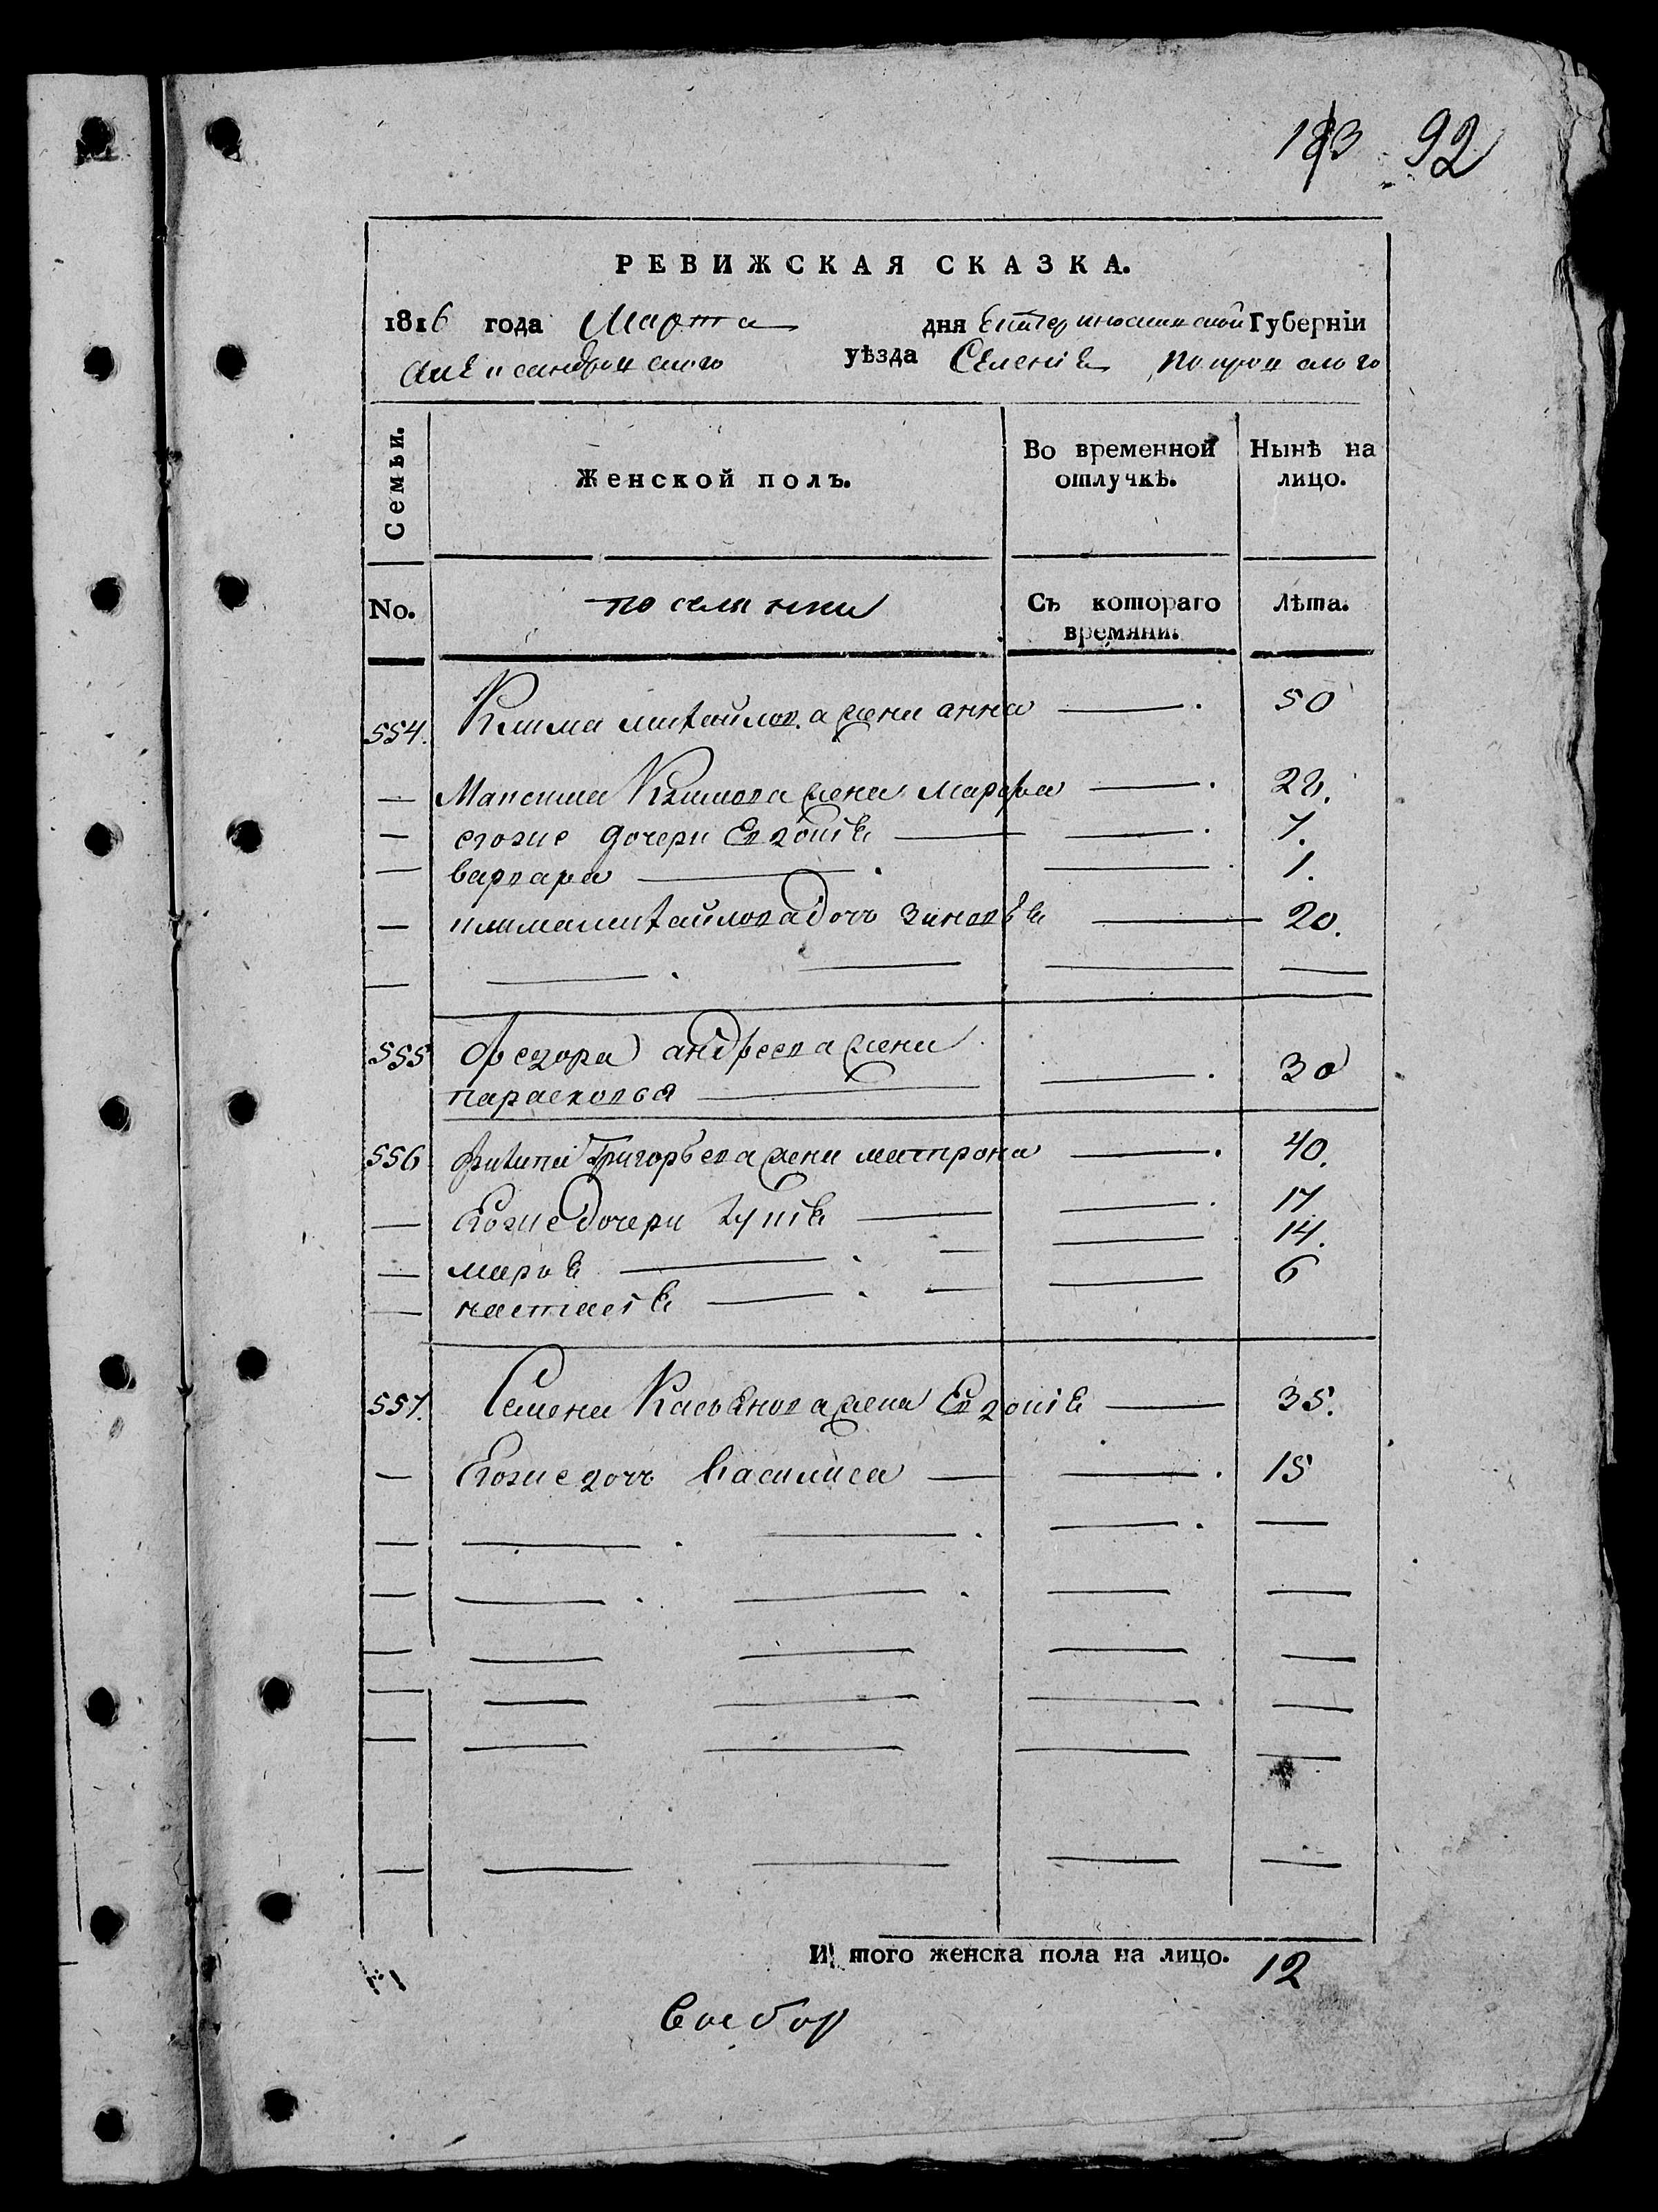 183 92
РЕВИЖСКАЯ СКАЗКА.
1816 года Марта дня Екатеринославской Губерніи
Александровского уѣзда Селенія Покровского
Семьи. Женской полъ. Во временной отлучкѣ. Нынѣ на лицо.
No. поселянки Съ котораго времяни. Лѣта.
554. Клима михайлова жена анна 50
Максима Климова жена марфа 28.
егоже дочери Евдокія 7.
варвара 1.
клима михайлова дочь зиновья 20.
555 Федора андреева жена
парасковья 30
556 филипа Григорьева жена матрона 40.
Егоже дочери 17
марья 14.
настасія 6
557. Семена Касьянова жена Евдокія 35.
Егоже дочь василиса 15
И того женска пола на лицо. 12